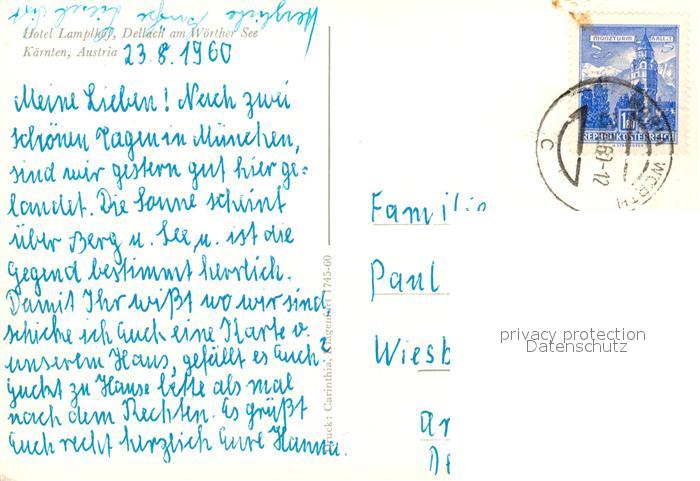 Herzliche Grüße
Hotel Lamplhof, Dellach am Wörther See
Kärnten, Austria
23.8.1960
Meine Lieben! Nach zwei
schönen Tagen in München,
sind wir gestern gut hier ge-
landet. Die Sonne scheint
über Berg u. See, u. ist die
Gegend bestimmt herrlich.
Damit Ihr wißt wo wir sind,
schicke ich Euch eine Karte v.
unserem Haus, gefällt es Euch?
Guckt zu Hause bitte als mal
nach dem Rechten. Es grüßt
Euch recht herzlich Eure Hanna.
Druck: Carinthia, Klagenfurt 1745-60
5 MÜNZTURM HALL i. T. 5
REPUBLIK ÖSTERREICH
WÖRTH
60-12
C
Famili
Paul
Wiesb
privacy protection
Datenschutz